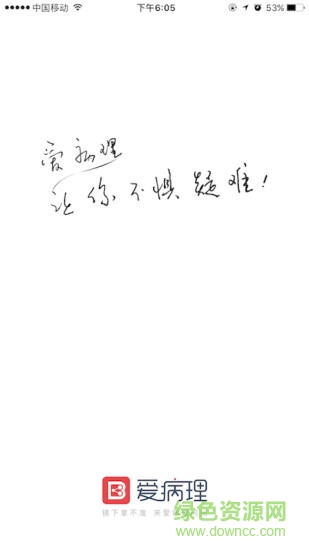 中国移动
下午6:05
53%
爱病理
让你不惧疑难!
爱病理
镜下拿不准 来爱
绿色资源网
www.downcc.com